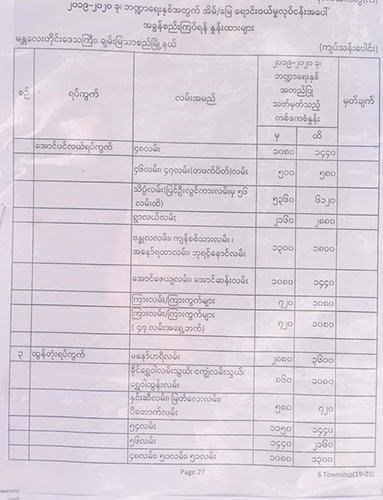 ၂၀၁၉-၂၀၂၀ ခု၊ ဘဏ္ဍာရေးနှစ်အတွက် အိမ်/မြေ ရောင်းဝယ်မှုလုပ်ငန်းအပေါ်
အခွန်စည်းကြပ်ရန် နှုန်းထားများ
မန္တလေးတိုင်းဒေသကြီး၊ ချမ်းမြသာစည်မြို့နယ်
(ကျပ်သန်းပေါင်း)
စဉ် ရပ်ကွက် လမ်းအမည် ၂၀၁၉-၂၀၂၀ ခု၊ ဘဏ္ဍာရေးနှစ် အတည်ပြု သတ်မှတ်သည့် တစ်ဧကစံနှုန်း မှတ်ချက်
မှ ထိ
အောင်ပင်လယ်ရပ်ကွက် ၄၈လမ်း ၁၀၈၀ ၁၄၄၀
၄၆လမ်း၊ ၄၇လမ်း(တဖက်ပိတ်)လမ်း ၅၀၀ ၅၈၀
သိပ္ပံလမ်း(ပြင်ဦးလွင်ကားလမ်းမှ ၅၆
လမ်းထိ) ၅၃၆၀ ၆၁၂၀
ရွာလယ်လမ်း ၂၁၆၀ ၂၈၈၀
ဗန္ဓုလလမ်း၊ ကျန်စစ်သားလမ်း ၊
အနော်ရထာလမ်း၊ ဘုရင့်နောင်လမ်း ၁၃၀၀ ၁၈၀၀
အောင်ဇေယျလမ်း၊ အောင်ဆန်းလမ်း ၁၀၈၀ ၁၄၄၀
ကြားလမ်း/ကြားကွက်များ ၇၂၀ ၁၀၈၀
ကြားလမ်း/ကြားကွက်များ
( ၄၇ လမ်းအရှေ့ဘက်) ၇၂၀ ၁၀၈၀
၃ ထွန်တုံးရပ်ကွက် မနော်ဟရီလမ်း ၂၈၈၀ ၃၆၀၀
ခိုင်ရွှေဝါလမ်းသွယ်၊ ငွေလမ်းသွယ်၊
ရွှေဝါထွန်းလမ်း ၈၆၀ ၁၀၈၀
နှင်းဆီလမ်း၊ မြတ်လေးလမ်း၊
ပိတောက်လမ်း ၅၈၀ ၇၂၀
၅၄လမ်း ၁၁၅၀ ၁၄၄၀
၅၆လမ်း ၁၄၄၀ ၂၁၆၀
၄၈လမ်း၊ ၅၀လမ်း၊ ၅၁လမ်း ၁၀၈၀ ၁၃၀၀
Page 27
6 Township(19-20)